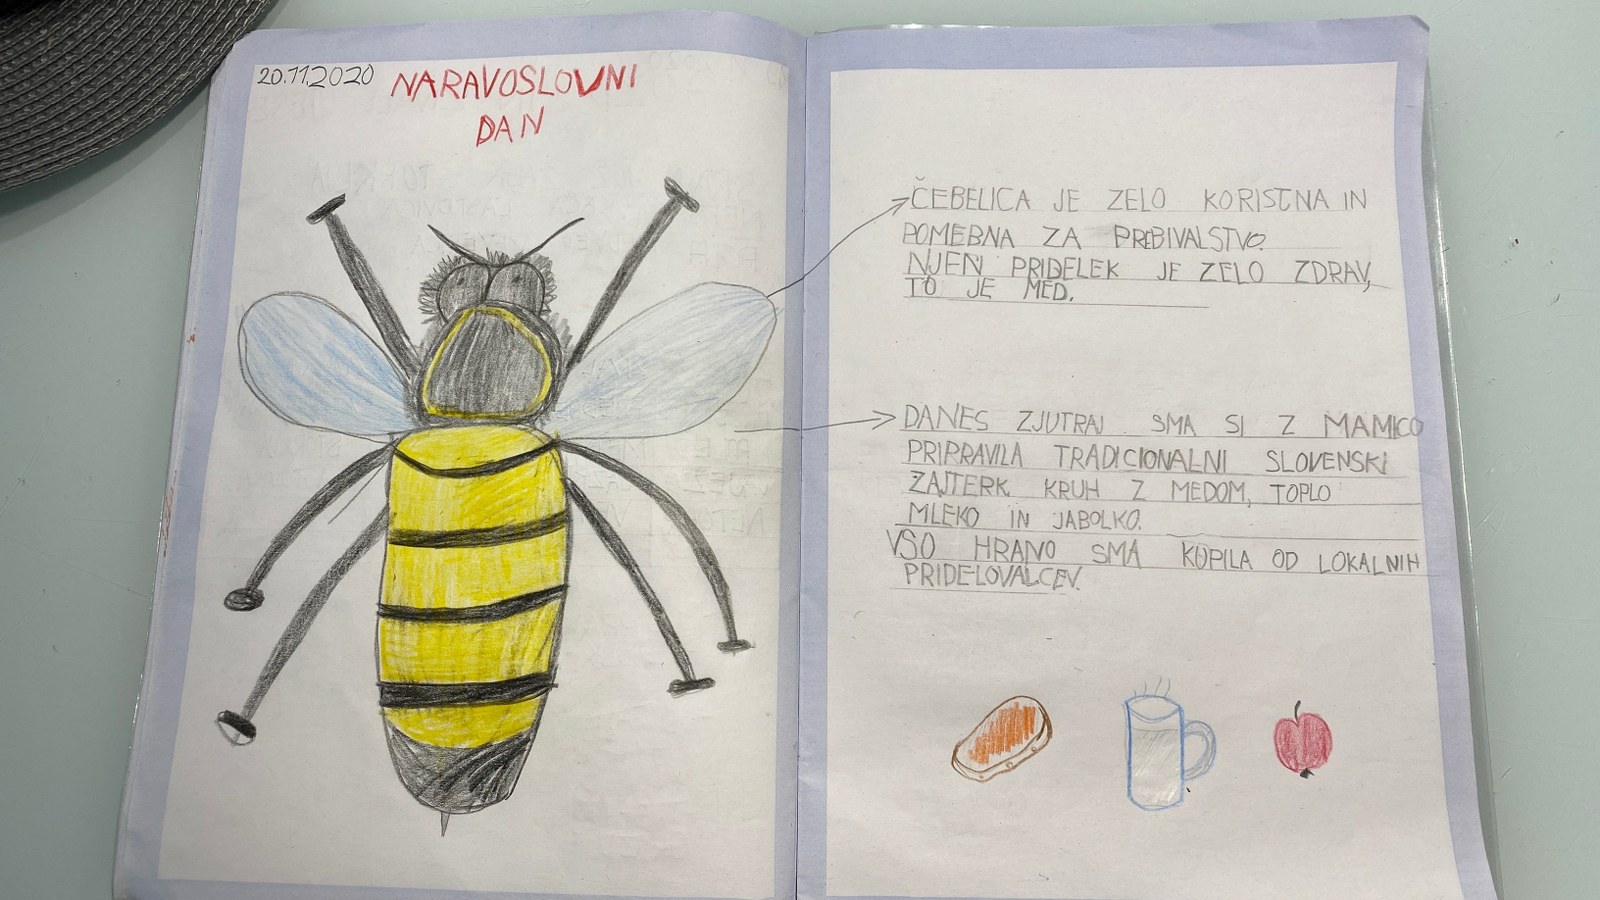 20.11.2020 NARAVOSLOVNI
DAN
ČEBELICA JE ZELO KORISTNA IN
POMEBNA ZA PREBIVALSTVO.
NJEN PRIDELEK JE ZELO ZDRAV,
TO JE MED.
DANES ZJUTRAJ SMA SI Z MAMICO
PRIPRAVILA TRADICIONALNI SLOVENSKI
ZAJTERK, KRUH Z MEDOM, TOPLO
MLEKO IN JABOLKO.
VSO HRANO SMA KUPILA OD LOKALNIH
PRIDELOVALCEV.